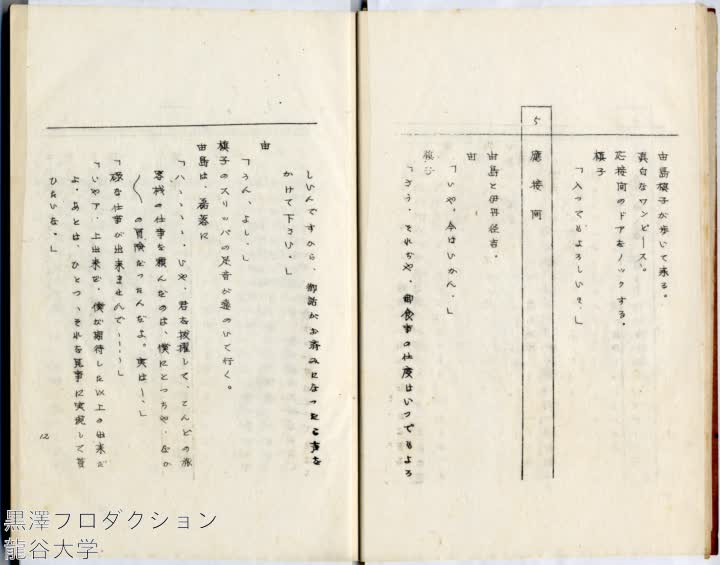 由島槙子が歩いて来る。
真白なワンピース。
応接間のドアをノックする。
槙子
「入ってもよろしいを。」
5 應接間
由島と伊丹径吉。
由
「いや。今はいかん。」
槙子
「さう、それぢや、御食事の仕度はいつでもよろ
しいんですから、御話がお済みになったら声を
かけて下さい。」
由
「うん、よし。」
槙子のスリッパの足音が遠のいて行く。
由島は、磊落に
「ハヽヽヽヽ、いや、君を抜擢して、こんどの旅
客機の仕事を頼んだのは、僕にとっちや、
の冒険だったんだよ。実は――。」
「碌な仕事が出来ませんで……」
「いやア、上出来だ、僕が期待した以上の出来だ
よ、あとは、ひとつ、それを見事に実現して貰
ひたいな。」
12
黒澤プロダクション
龍谷大学